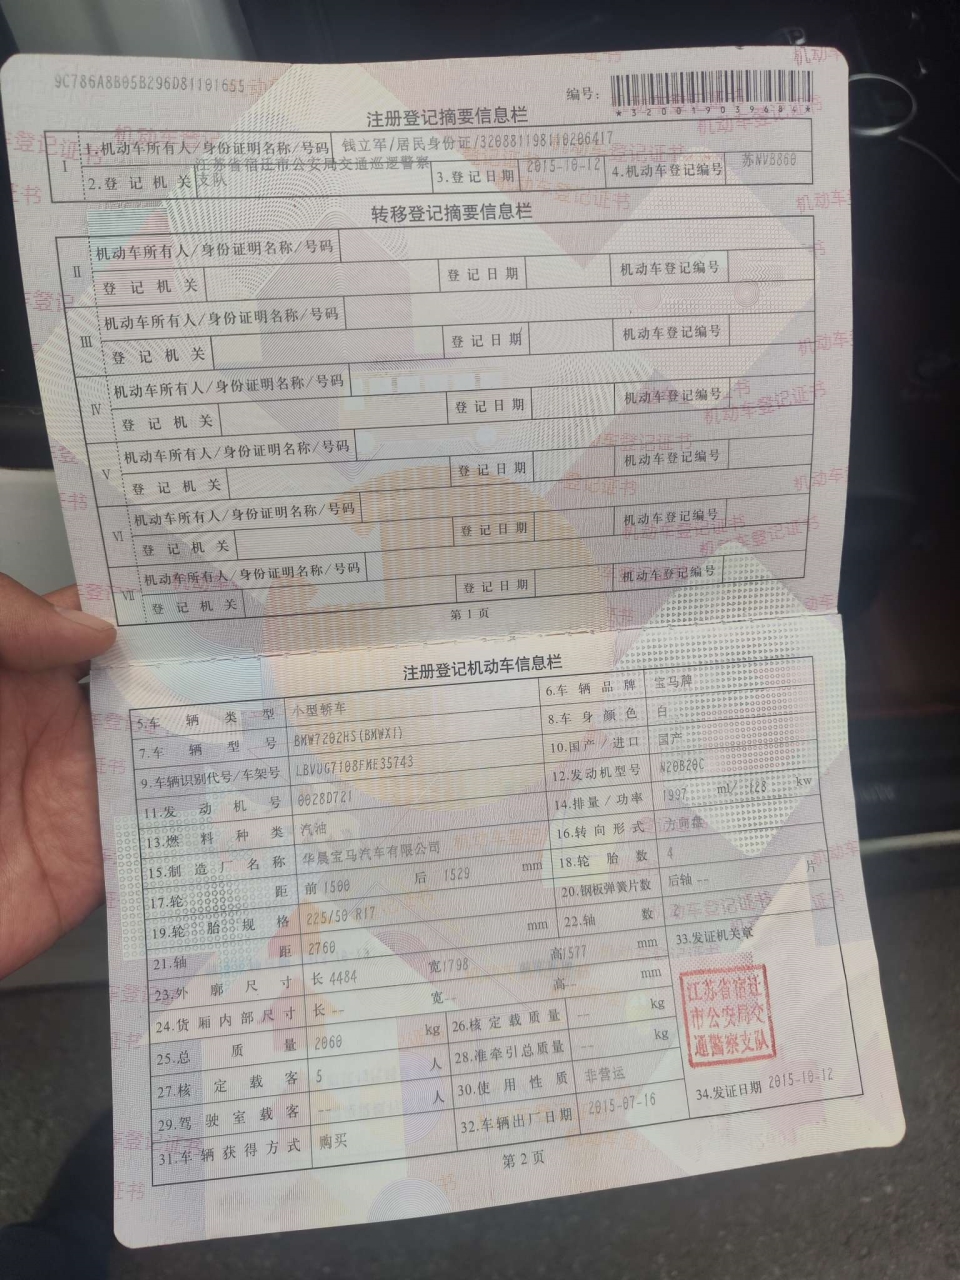 9C786A8B05B296D81101655
编号：
*320019039484*
注册登记摘要信息栏
I 1.机动车所有人/身份证明名称/号码 钱立军/居民身份证/320881198110206417
2.登记机关 江苏省宿迁市公安局交通巡逻警察支队 3.登记日期 2015-10-12 4.机动车登记编号 苏NVB860
转移登记摘要信息栏
II 机动车所有人/身份证明名称/号码
登记机关 登记日期 机动车登记编号
III 机动车所有人/身份证明名称/号码
登记机关 登记日期 机动车登记编号
IV 机动车所有人/身份证明名称/号码
登记机关 登记日期 机动车登记编号
V 机动车所有人/身份证明名称/号码
登记机关 登记日期 机动车登记编号
VI 机动车所有人/身份证明名称/号码
登记机关 登记日期 机动车登记编号
VII 机动车所有人/身份证明名称/号码
登记机关 登记日期 机动车登记编号
第1页
注册登记机动车信息栏
5.车辆类型 小型轿车 6.车辆品牌 宝马牌
7.车辆型号 BMW7202HS(BMWX1) 8.车身颜色 白
9.车辆识别代号/车架号 LBVUG7108FME35743 10.国产/进口 国产
11.发动机号 0028D721 12.发动机型号 N20B20C
13.燃料种类 汽油 14.排量/功率 1997 ml/ 128 kw
15.制造厂名称 华晨宝马汽车有限公司 16.转向形式 方向盘
17.轮距 前 1500 后 1529 mm 18.轮胎数 4
19.轮胎规格 225/50 R17 20.钢板弹簧片数 后轴 -- 片
21.轴距 2760 mm 22.轴数 2
23.外廓尺寸 长 4484 宽 1798 高 1577 mm 33.发证机关章
24.货厢内部尺寸 长 -- 宽 -- 高 -- mm
25.总质量 2060 kg 26.核定载质量 -- kg
27.核定载客 5 人 28.准牵引总质量 -- kg
29.驾驶室载客 -- 人 30.使用性质 非营运
31.车辆获得方式 购买 32.车辆出厂日期 2015-07-16 34.发证日期 2015-10-12
江苏省宿迁
市公安局交
通警察支队
第2页